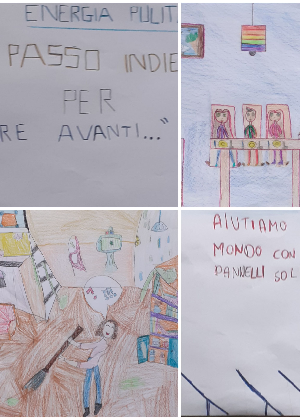 ENERGIA PULIT
PASSO INDIE
PER
RE AVANTI..."
AIUTIAMO
MONDO CON
PANNELLI SOL